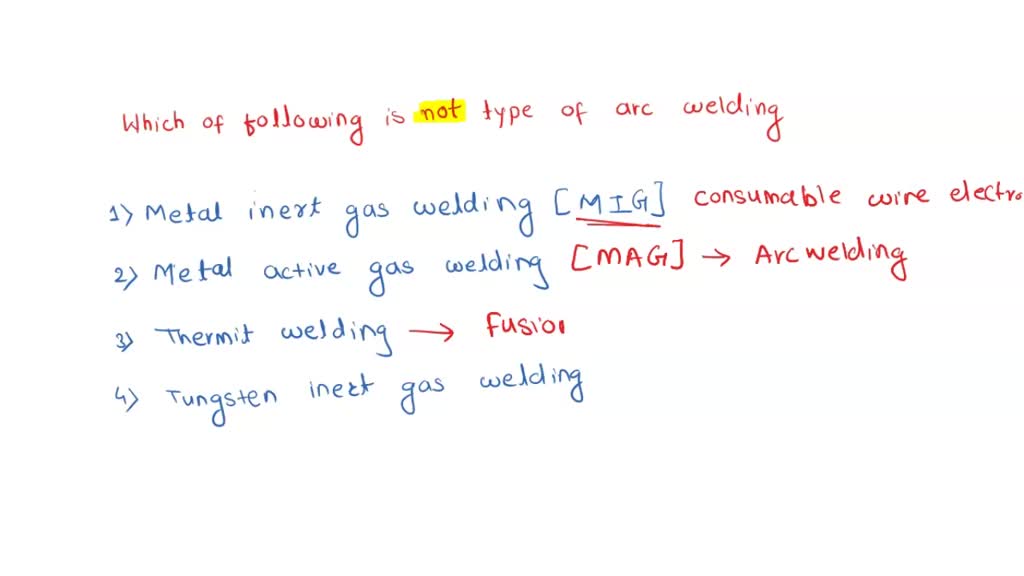 Which of following is not type of arc welding
1) Metal inert gas welding [MIG] consumable wire electro
2) Metal active gas welding [MAG] → Arc welding
3) Thermit welding → Fusion
4) Tungsten inert gas welding